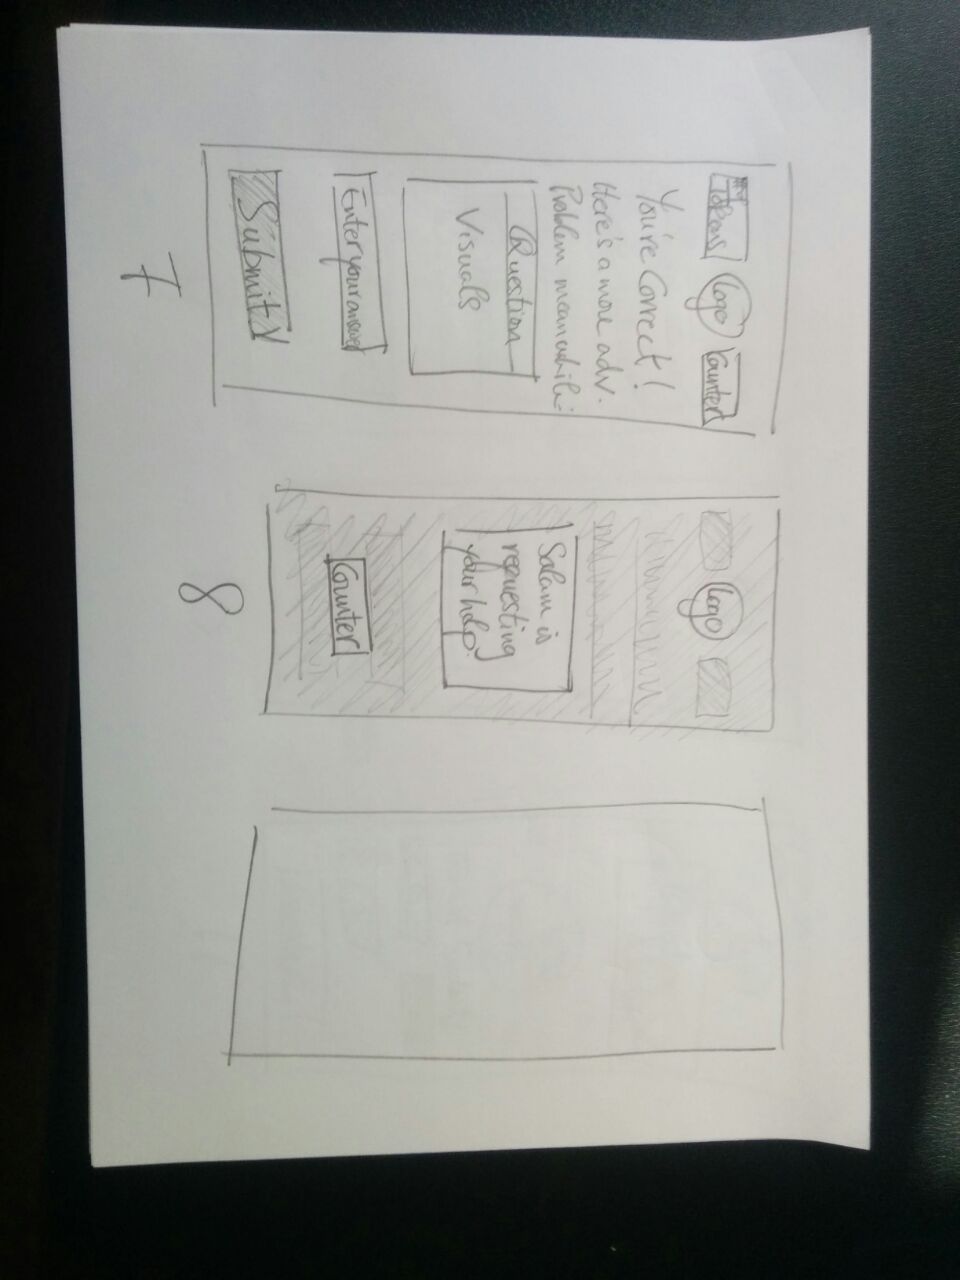 #of
Tokens
Logo
Counter
You're Correct!
Here's a more adv.
Problem meanwhile:
Question
Visuals
Enter your answer
Submit
7
Logo
Salam is
requesting
your help.
Counter
8